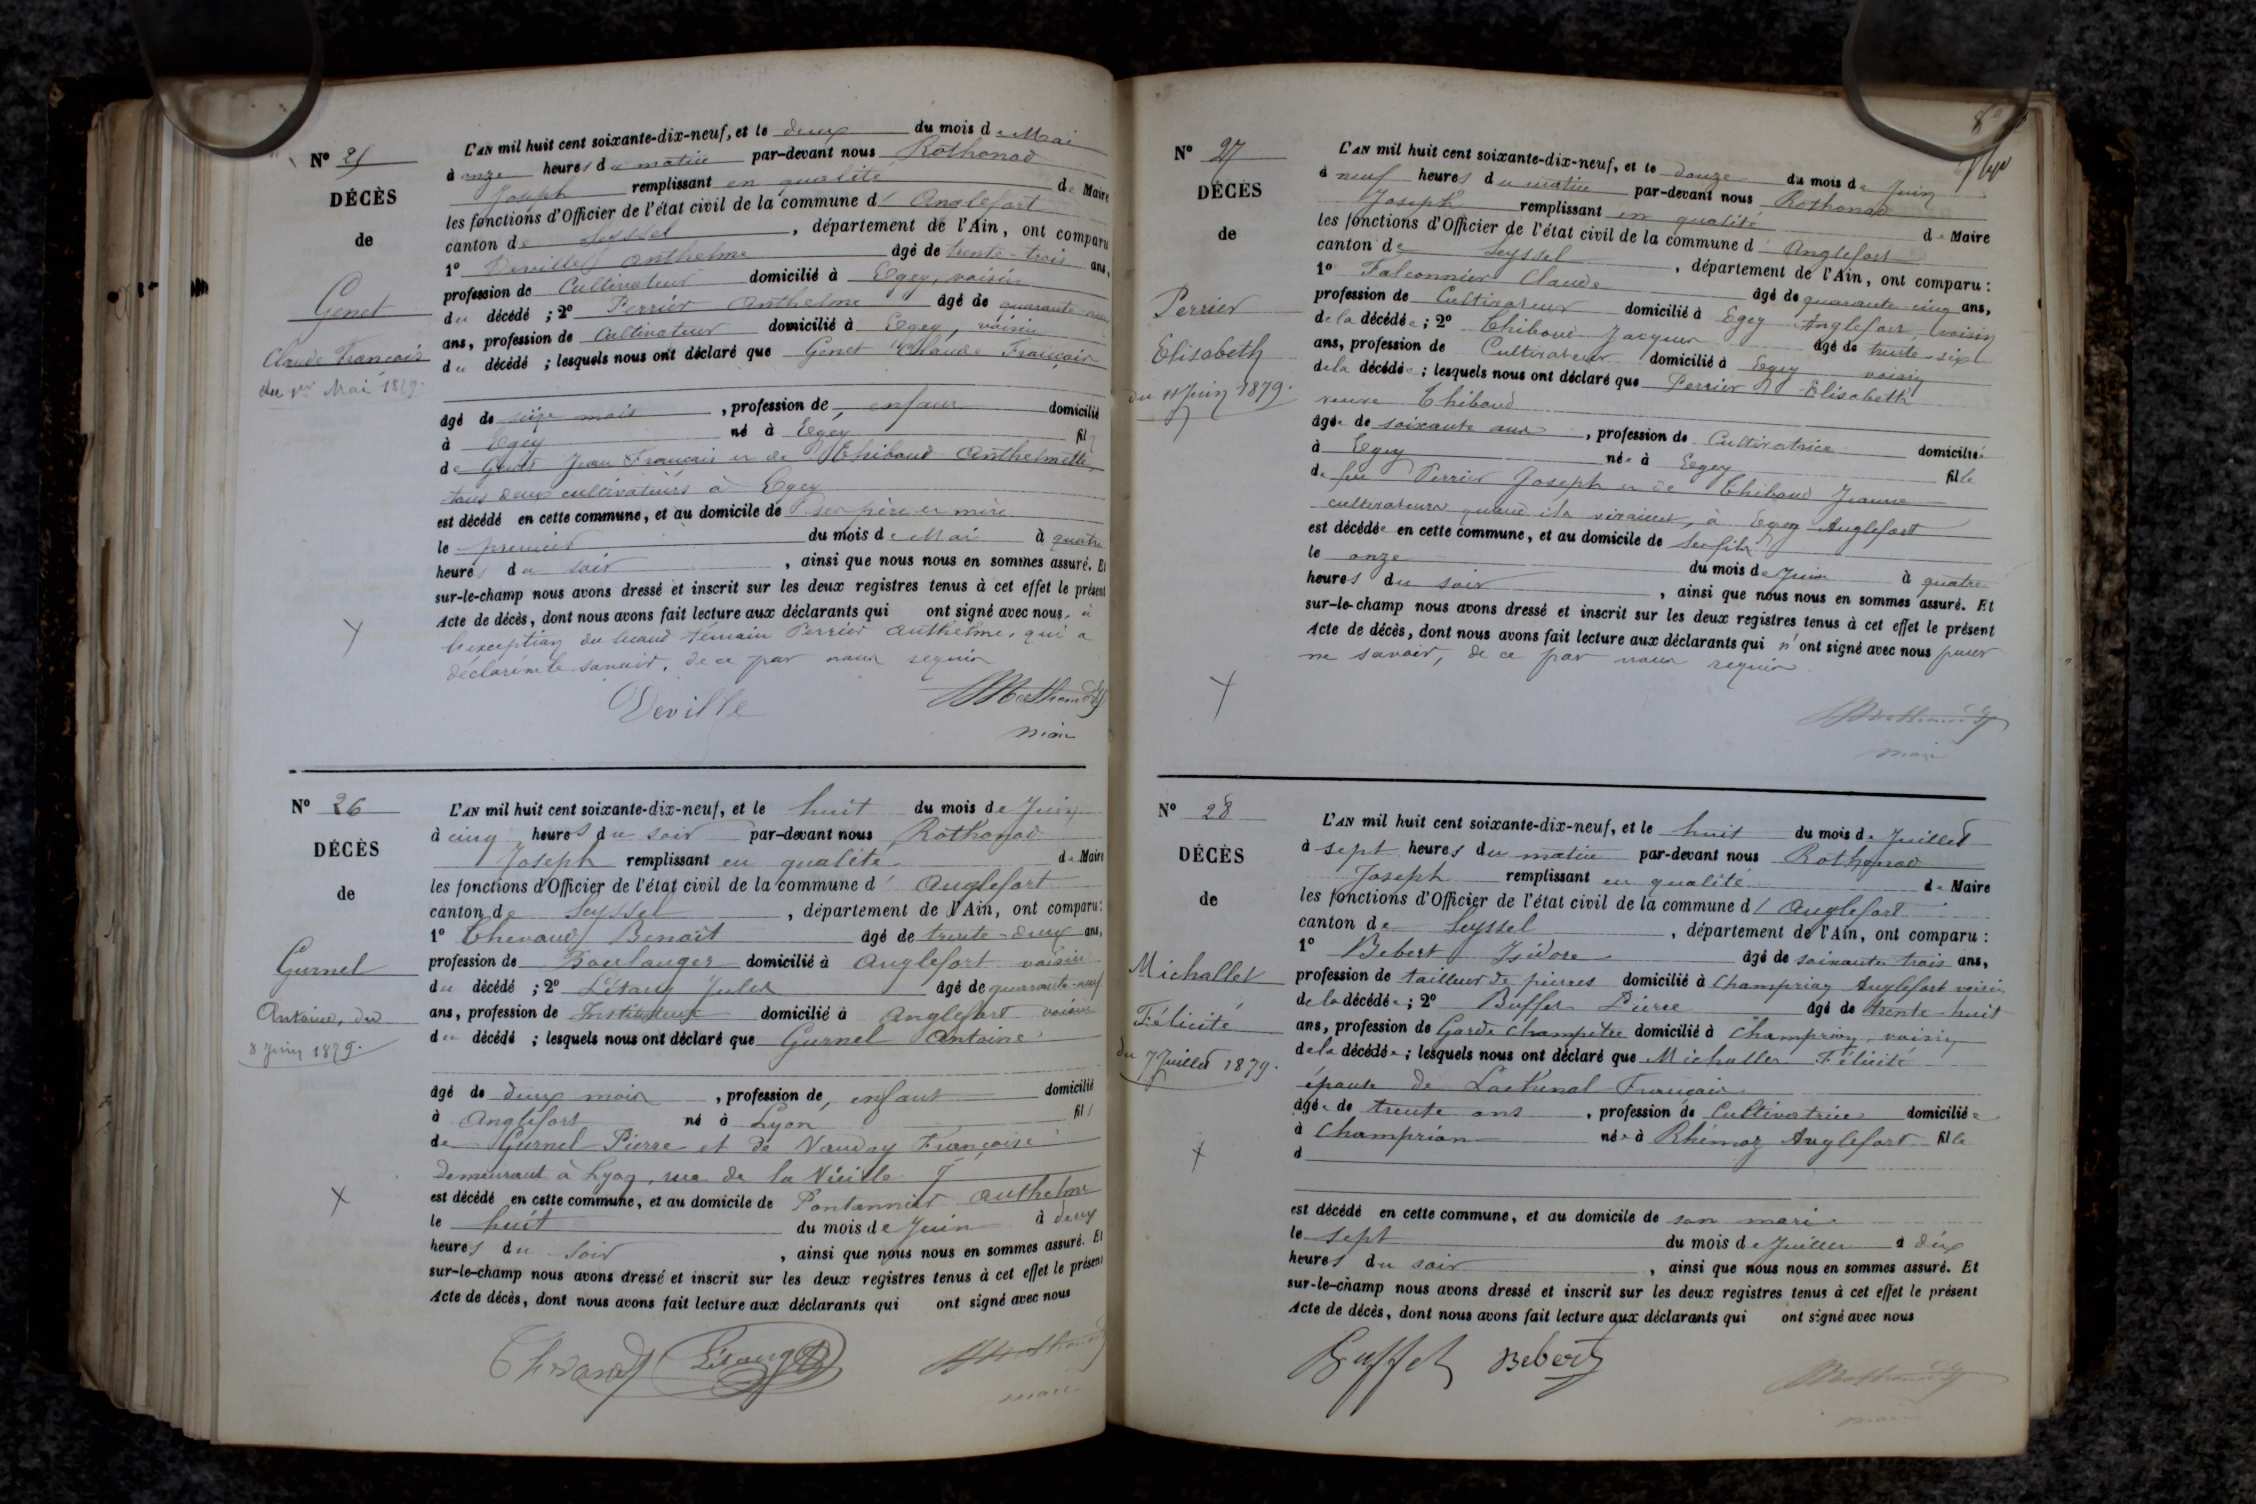 Nº 25
DÉCÈS
de
Genet
Claude François
du 1er Mai 1879.
L'AN mil huit cent soixante-dix-neuf, et le deux du mois de Mai
à onze heures du matin par-devant nous Rothonod
Joseph remplissant en qualité de Maire
les fonctions d'Officier de l'état civil de la commune d' Anglefort
canton de Seyssel , département de l'Ain, ont comparu
1º Deville Anthelme âgé de trente-trois ans,
profession de Cultivateur domicilié à Egey, voisin
du décédé ; 2º Perrier Anthelme âgé de quarante
ans, profession de Cultivateur domicilié à Egey, voisin
du décédé ; lesquels nous ont déclaré que Genet Claude François
âgé de seize mois , profession de enfant domicilié
à Egey né à Egey fils
de Genet Jean François et de Thiboud Anthelmette
tous deux cultivateurs à Egey
est décédé en cette commune, et au domicile de ses père et mère
le premier du mois de Mai à quatre
heures du soir , ainsi que nous nous en sommes assuré. Et
sur-le-champ nous avons dressé et inscrit sur les deux registres tenus à cet effet le présent
Acte de décès, dont nous avons fait lecture aux déclarants qui ont signé avec nous, à
l'exception du second témoin Perrier Anthelme, qui a
déclaré ne le savoir, de ce par nous requis
Deville
Rothonod
maire
Nº 26
DÉCÈS
de
Gurnel
Antoine, du
8 Juin 1879.
L'AN mil huit cent soixante-dix-neuf, et le huit du mois de Juin
à cinq heures du soir par-devant nous Rothonod
Joseph remplissant en qualité de Maire
les fonctions d'Officier de l'état civil de la commune d' Anglefort
canton de Seyssel , département de l'Ain, ont comparu :
1º Chevand Benoît âgé de trente-deux ans,
profession de Boulanger domicilié à Anglefort voisin
du décédé ; 2º Létang Jules âgé de quarante-neuf
ans, profession de Instituteur domicilié à Anglefort voisin
du décédé ; lesquels nous ont déclaré que Gurnel Antoine
âgé de deux mois , profession de enfant domicilié
à Anglefort né à Lyon fils
de Gurnel Pierre et de Vauday Françoise
demeurant à Lyon, rue de la Vieille
est décédé en cette commune, et au domicile de Pontannier Anthelme
le huit du mois de Juin à deux
heures du soir , ainsi que nous nous en sommes assuré. Et
sur-le-champ nous avons dressé et inscrit sur les deux registres tenus à cet effet le présent
Acte de décès, dont nous avons fait lecture aux déclarants qui ont signé avec nous
Chevand Létang Rothonod
maire
Nº 27
DÉCÈS
de
Perrier
Elisabeth
du 11 Juin 1879.
L'AN mil huit cent soixante-dix-neuf, et le douze du mois de Juin
à neuf heures du matin par-devant nous Rothonod
Joseph remplissant en qualité de Maire
les fonctions d'Officier de l'état civil de la commune d' Anglefort
canton de Seyssel , département de l'Ain, ont comparu :
1º Falconnier Claude âgé de quarante-cinq ans,
profession de Cultivateur domicilié à Egey Anglefort voisin
de la décédée ; 2º Thiboud Jacques âgé de trente-six
ans, profession de Cultivateur domicilié à Egey voisin
de la décédée ; lesquels nous ont déclaré que Perrier Elisabeth
veuve Thiboud
âgée de soixante ans , profession de Cultivatrice domiciliée
à Egey née à Egey fille
de feu Perrier Joseph et de Thiboud Jeanne
cultivateurs quand ils vivaient, à Egey Anglefort
est décédée en cette commune, et au domicile de ses fils
le onze du mois de Juin à quatre
heures du soir , ainsi que nous nous en sommes assuré. Et
sur-le-champ nous avons dressé et inscrit sur les deux registres tenus à cet effet le présent
Acte de décès, dont nous avons fait lecture aux déclarants qui n'ont signé avec nous pour
ne savoir, de ce par nous requis
Rothonod
maire
Nº 28
DÉCÈS
de
Michallet
Félicité
du 7 Juillet 1879.
L'AN mil huit cent soixante-dix-neuf, et le huit du mois de Juillet
à sept heures du matin par-devant nous Rothonod
Joseph remplissant en qualité de Maire
les fonctions d'Officier de l'état civil de la commune d' Anglefort
canton de Seyssel , département de l'Ain, ont comparu :
1º Bebert Isidore âgé de soixante trois ans,
profession de tailleur de pierres domicilié à Champrion Anglefort voisin
de la décédée ; 2º Buffet Pierre âgé de trente-huit
ans, profession de Garde champêtre domicilié à Champrion, voisin
de la décédée ; lesquels nous ont déclaré que Michallet Félicité
épouse de Lathenol François
âgée de trente ans , profession de Cultivatrice domiciliée
à Champrion née à Rhémoz Anglefort fille
d
est décédé en cette commune, et au domicile de son mari
le sept du mois de Juillet à dix
heures du soir , ainsi que nous nous en sommes assuré. Et
sur-le-champ nous avons dressé et inscrit sur les deux registres tenus à cet effet le présent
Acte de décès, dont nous avons fait lecture aux déclarants qui ont signé avec nous
Buffet Bebert
Rothonod
maire